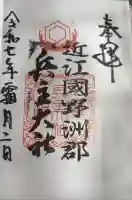 奉拝
近江國野洲郡
兵主大社
令和七年霜月二日